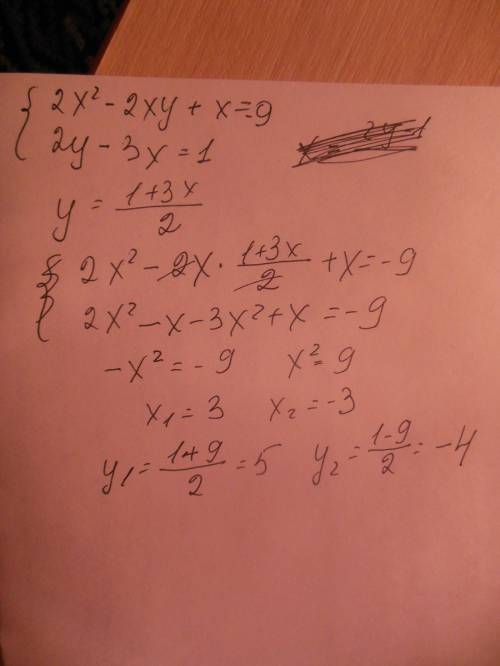 { 2x² - 2xy + x = -9
2y - 3x = 1
y = (1+3x)/2
{ 2x² - 2x · (1+3x)/2 + x = -9
2x² - x - 3x² + x = -9
-x² = -9 x² = 9
x₁ = 3 x₂ = -3
y₁ = (1+9)/2 = 5 y₂ = (1-9)/2 = -4